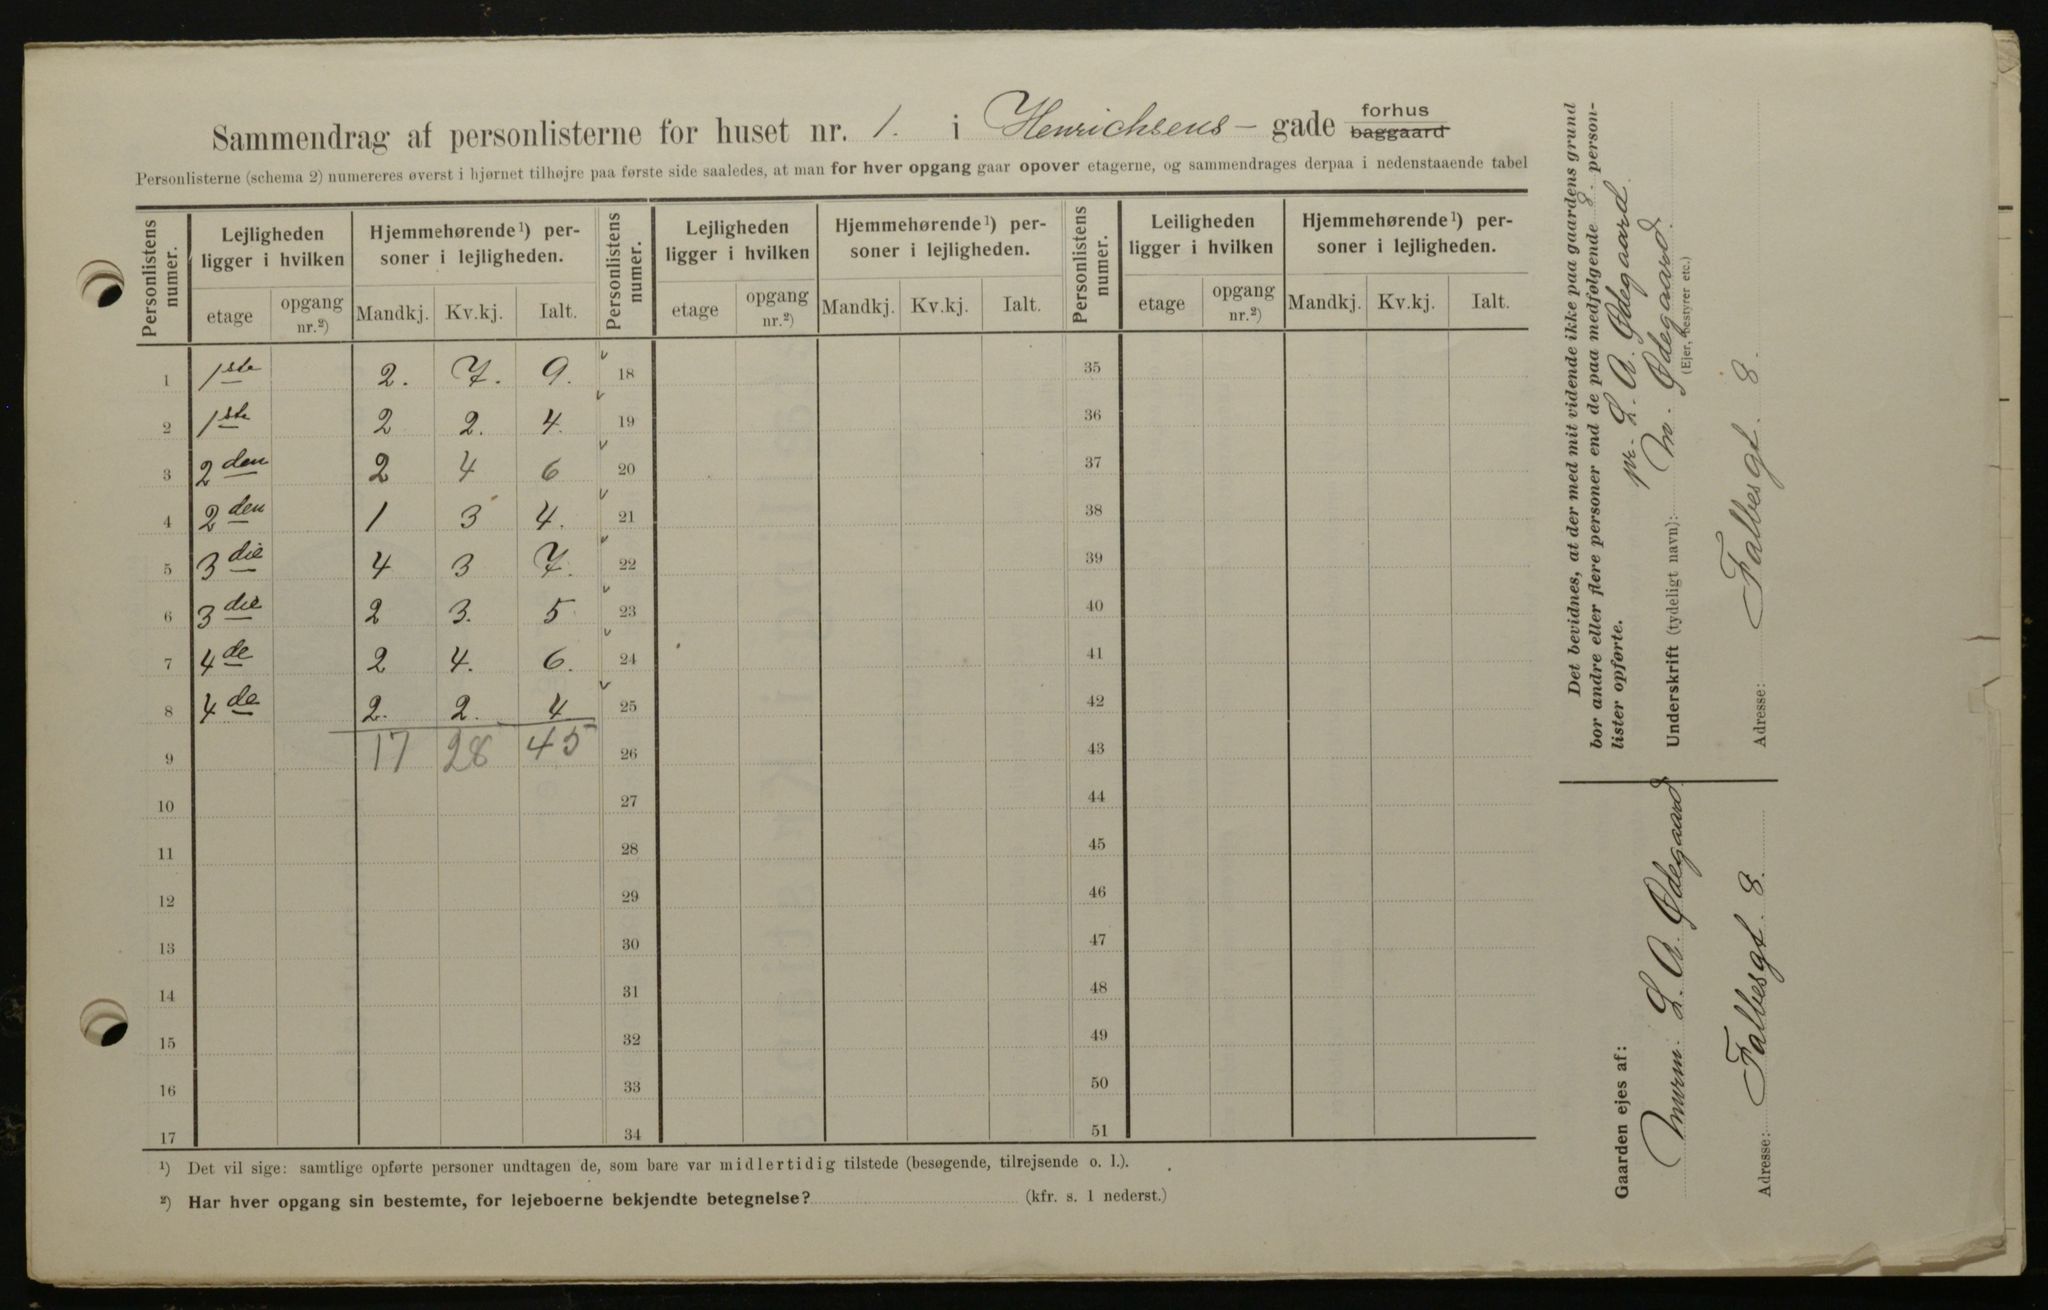 Sammendrag af personlisterne for huset nr. 1. i Henrichsens - gade forhus ~~baggaard~~
Personlisterne (schema 2) numereres øverst i hjørnet tilhøjre paa første side saaledes, at man for hver opgang gaar opover etagerne, og sammendrages derpaa i nedenstaaende tabel
Personlistens numer. Lejligheden ligger i hvilken Hjemmehørende¹) personer i lejligheden. Personlistens numer. Lejligheden ligger i hvilken Hjemmehørende¹) personer i lejligheden. Personlistens numer. Leiligheden ligger i hvilken Hjemmehørende¹) personer i lejligheden.
etage opgang nr.²) Mandkj. Kv.kj. Ialt. etage opgang nr.²) Mandkj. Kv.kj. Ialt. etage opgang nr.²) Mandkj. Kv.kj. Ialt.
1 1ste 2. 7. 9. 18 35
2 1ste 2 2. 4. 19 36
3 2den 2 4 6 20 37
4 2den 1 3 4. 21 38
5 3die 4 3 7. 22 39
6 3die 2 3. 5 23 40
7 4de 2 4. 6. 24 41
8 4de 2. 2. 4 25 42
9 17 28 45 26 43
10 27 44
11 28 45
12 29 46
13 30 47
14 31 48
15 32 49
16 33 50
17 34 51
¹) Det vil sige: samtlige opførte personer undtagen de, som bare var midlertidig tilstede (besøgende, tilrejsende o. l.).
²) Har hver opgang sin bestemte, for lejeboerne bekjendte betegnelse? (kfr. s. 1 nederst.)
Det bevidnes, at der med mit vidende ikke paa gaardens grund
bor andre eller flere personer end de paa medfølgende 8. person-
lister opførte.
pr. L. A. Ødegaard.
Underskrift (tydeligt navn): M. Ødegaard.
(Ejer, bestyrer etc.)
Adresse: Falbesgt. 8.
Gaarden ejes af:
Murm. L. A. Ødegaard
Adresse: Falbesgt. 8.